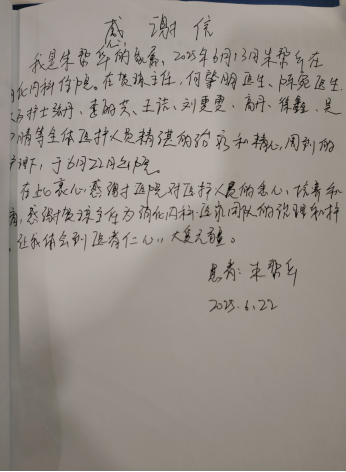 感谢信
我是朱帮兵的家属，2025年6月13日朱帮兵在
化内科住院。在贺琼主任，何肇明医生、陈宛医生
护士张丹、李丽芳、王读、刘雯雯、高丹、徐鑫、吴
情等全体医护人员精湛的治疗和精心，周到的
护理下，于6月22日出院。
在此衷心感谢医院对医护人员的关心、培养和
，感谢贺琼主任为消化内科医疗团队的管理和
让我体会到医者仁心，大爱无疆。
患者：朱帮兵
2025.6.22